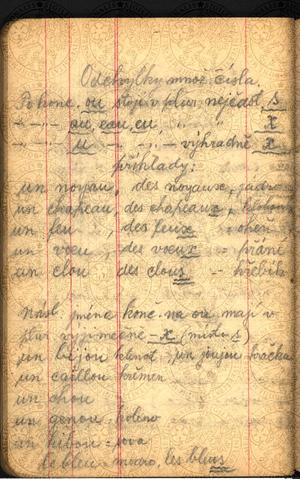 Odchylky množ. čísla.
Po konc. ou stojí v plur. nejčast. s
—"— au, eau, eu, " " x
—"— u —"— výhradně x
příklady:
un noyau, des noyaux, jádro
un chapeau, des chapeaux, klobouk
un feu, des feux - oheň
un vœu, des vœux - přání
un clou des clous - hřebík
Násl. jména konč. na ou mají v
plur. výjimečně x (místo s)
un bijou klenot, un joujou hračka
un caillou křemen
un chou
un genou koleno
un hibou = sova
le bleu = modro, les bleus